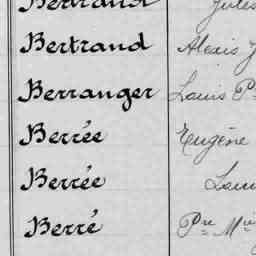 Bertrand Jules
Bertrand Alexis J
Berranger Louis P
Berrée Eugène
Berrée Loui
Berré Pre Mie